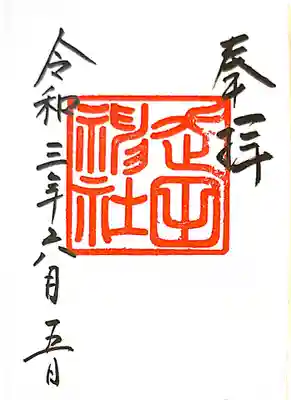 奉拝
神社
令和三年六月五日